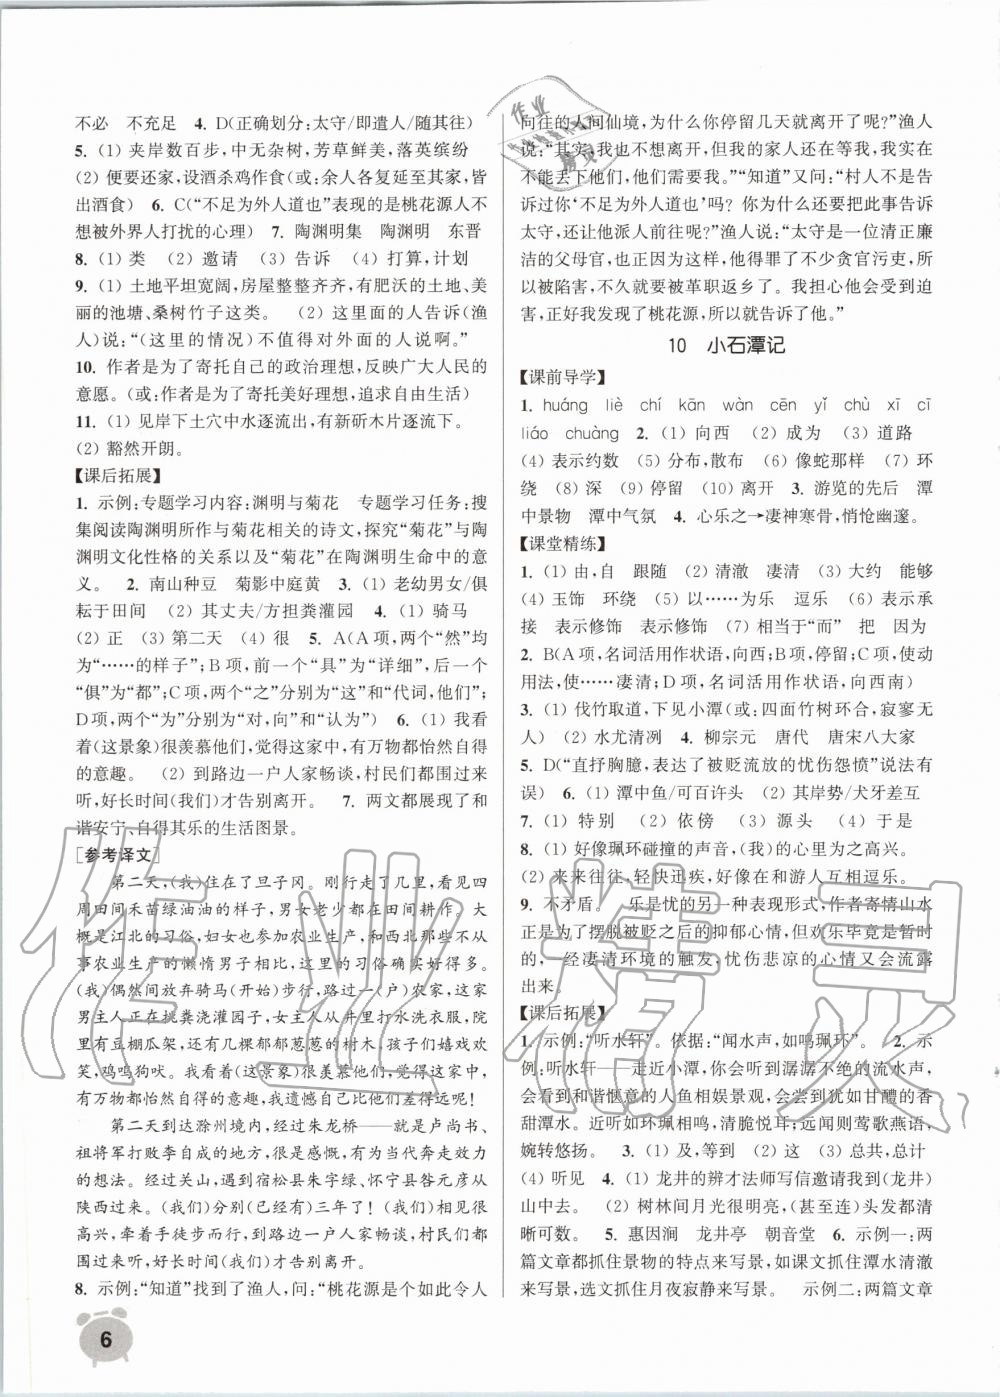 不必　不充足　4. D(正确划分:太守/即遣人/随其往)
5. (1) 夹岸数百步,中无杂树,芳草鲜美,落英缤纷
(2) 便要还家,设酒杀鸡作食(或:余人各复延至其家,皆
出酒食)　6. C(“不足为外人道也”表现的是桃花源人不
想被外界人打扰的心理)　7. 陶渊明集　陶渊明　东晋
8. (1) 类　(2) 邀请　(3) 告诉　(4) 打算,计划
9. (1) 土地平坦宽阔,房屋整整齐齐,有肥沃的土地、美
丽的池塘、桑树竹子这类。　(2) 这里面的人告诉(渔
人)说:“(这里的情况)不值得对外面的人说啊。”
10. 作者是为了寄托自己的政治理想,反映广大人民的
愿望。(或:作者是为了寄托美好理想,追求自由生活)
11. (1) 见岸下土穴中水逐流出,有新斫木片逐流下。
(2) 豁然开朗。
【课后拓展】
1. 示例:专题学习内容:渊明与菊花　专题学习任务:搜
集阅读陶渊明所作与菊花相关的诗文,探究“菊花”与陶
渊明文化性格的关系以及“菊花”在陶渊明生命中的意
义。　2. 南山种豆　菊影中庭黄　3. (1) 老幼男女/俱
耘于田间　(2) 其丈夫/方担粪灌园　4. (1) 骑马
(2) 正　(3) 第二天　(4) 很　5. A(A项,两个“然”均
为“……的样子”;B项,前一个“具”为“详细”,后一个
“俱”为“都”;C项,两个“之”分别为“这”和“代词,他们”;
D项,两个“为”分别为“对,向”和“认为”)　6. (1) 我看
着(这景象)很羡慕他们,觉得这家中,有万物都怡然自得
的意趣。　(2) 到路边一户人家畅谈,村民们都围过来
听,好长时间(我们)才告别离开。　7. 两文都展现了和
谐安宁、自得其乐的生活图景。
[参考译文]
第二天,(我)住在了旦子冈。刚行走了几里,看见四
周田间禾苗绿油油的样子,男女老少都在田间耕作。大
概是江北的习俗,妇女也参加农业生产,和西北的人不从
事农业生产的懒惰男子相比,这里的习俗确实好得多。
(我)偶然间放弃骑马(开始)步行,路过一(户)农家,这家
男主人正在挑粪浇灌园子,女主人从井里打水洗衣服,院
里有豆棚瓜架,还有几棵郁郁葱葱的树木,孩子们嬉戏欢
笑,鸡鸣狗吠。我看着(这景象)很羡慕他们,觉得这家中
有万物都怡然自得的意趣,我遗憾自己比不上他们生活得悠远呢!
第二天到达滁州境内,经过朱龙桥——就是卢尚书、
祖将军打败李自成的地方,很是感慨,有当代奔走效力的
想法。经过关山,遇到宿松县朱字绿、怀宁县昝元彦从
陕西过来。(我们)已经分别(已经)三年了!(我们)高兴
极了,牵着手徒步而行,到路边一户人家畅谈,村民们都
围过来听,好长时间(我们)才告别离开。
8. 示例:“知道”找到了渔人,问:“桃花源是个如此令人
向往的人间仙境,为什么你停留几天就离开了呢?”渔人
说:“其实,我也不想离开啊!但我的家人还在等我,我实在
不能丢下他们,他们需要我。”“知道”又问:“村人不是告
诉过你‘不足为外人道也’吗?你为什么还要把此事告诉
太守,还让他派人前往呢?”渔人说:“太守是一位清正廉
洁的父母官,也因为这样,得罪了不少贪官污吏,所以
被陷害,不久就要被革职返乡了。我担心他会受到迫
害,正好我发现了桃花源,所以就告诉了他。”
10　小石潭记
【课前导学】
1. huáng　liè　chí　kān　wàn　cēn　yǐ　chù　xī　cī
liáo　chuàng　2. (1) 向西　(2) 成为　(3) 道路
(4) 表示约数　(5) 分布,散布　(6) 像蛇那样　(7) 环
绕　(8) 深　(9) 停留　(10) 离开　3. 游览的先后　潭
中景物　潭中气氛　4. 心乐之→凄神寒骨,悄怆幽邃。
【课堂精练】
1. (1) 由,自　跟随　(2) 清澈　凄清　(3) 大约　能够
(4) 玉饰　环绕　(5) 以……为乐　逗乐　(6) 表示承
接　表示修饰　表示修饰　(7) 相当于“而”　把　因为
2. B(A项,名词活用作状语,向西;B项,停留;C项,使动
用法,使……凄清;D项,名词活用作状语,向西南)
3. (1) 伐竹取道,下见小潭(或:四面竹树环合,寂寥无
人)　(2) 水尤清冽　4. 柳宗元　唐代　唐宋八大家
5. D(“直抒胸臆,表达了被贬流放的忧伤怨愤”说法有
误)　6. (1) 潭中鱼/可百许头　(2) 其岸势/犬牙差互
7. (1) 特别　(2) 依傍　(3) 源头　(4) 于是
8. (1) 好像珮环碰撞的声音,(我)的心里为之高兴。
(2) 来来往往,轻快迅疾,好像在和游人互相逗乐。
9. 不矛盾。　乐是忧的另一种表现形式,作者寄情山水
正是为了摆脱被贬之后的抑郁心情,但欢乐毕竟是暂时
的,一经凄清环境的触发,忧伤悲凉的心情又会流露
出来。
【课后拓展】
1. 示例:“听水轩”。依据:“闻水声,如鸣珮环”。　2. 示
例:听水轩——走近小潭,会听到潺潺流水的声音,
会看到和谐惬意的人鱼相娱景观,会尝到犹如甘醴的香
甜潭水。近听如环珮相鸣,清脆悦耳;远闻则莺歌燕语,
婉转悠扬。　3. (1) 及,等到　(2) 这　(3) 总共,总计
(4) 听见　4. (1) 龙井的辨才法师写信邀请我(到)(龙井)
山中去。　(2) 树林间月光很明亮,(甚至连)头发都(能)
清晰可数。　5. 惠因涧　龙井亭　朝音堂　6. 示例一:两
篇文章都抓住景物的特点来写景,如课文抓住潭水清澈
来写景,选文抓住月夜寂静来写景。　示例二:两篇文章
6
作业精灵